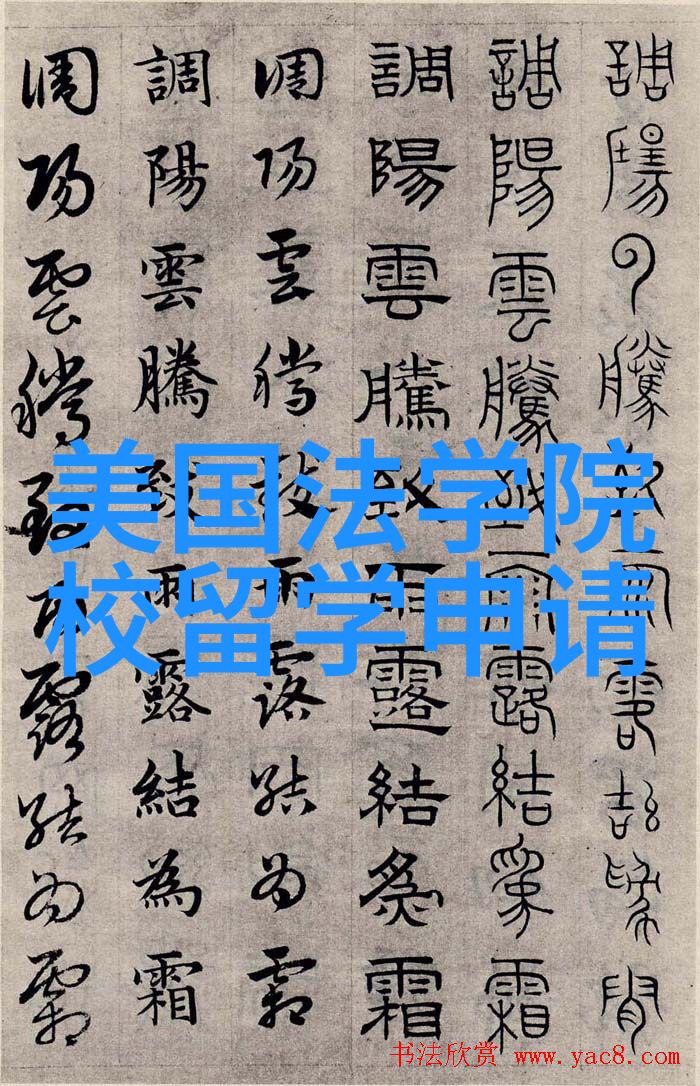 調陽雲騰致雨露結為霜
調陽雲騰致雨露結為霜
調陽雲騰致雨露結為霜
調陽雲騰致雨露結為霜
調陽雲騰致雨露結為霜
調陽雲騰致雨露結為霜
美国法学院
校留学申请
书法欣赏 www.yac8.com